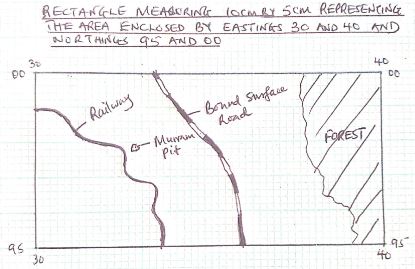 RECTANGLE MEASURING 10CM BY 5CM REPRESENTING
THE AREA ENCLOSED BY EASTINGS 30 AND 40 AND
NORTHINGS 95 AND 00
30
40
00
00
Railway
Bound Surface
Road
Murram
Pit
FOREST
95
95
30
40